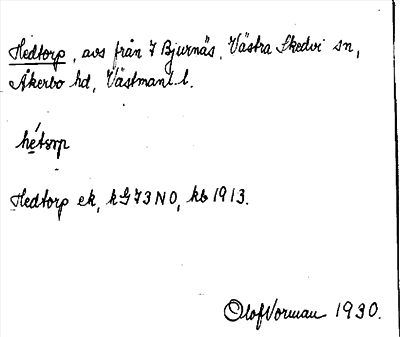 Hedtorp, avs från 7 Bjurnäs, Västra Skedvi sn,
Åkerbo hd, Västmanl. l.
hétorp
Hedtorp ek, kG 73 NO, kb 1913.
Olof Vorman 1930.